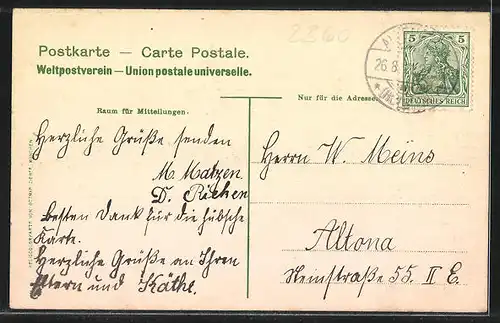 2260
Postkarte — Carte Postale.
Weltpostverein — Union postale universelle.
Raum für Mitteilungen.
Nur für die Adresse.
5 5
DEUTSCHES REICH
26.8.
Herzliche Grüße senden
M. Matzen
D.
Besten Dank für die hübsche
Karte.
Herzliche Grüße an Ihren
Eltern und Käthe.
Herrn W. Meins
Altona
Steinstraße 55 II E.